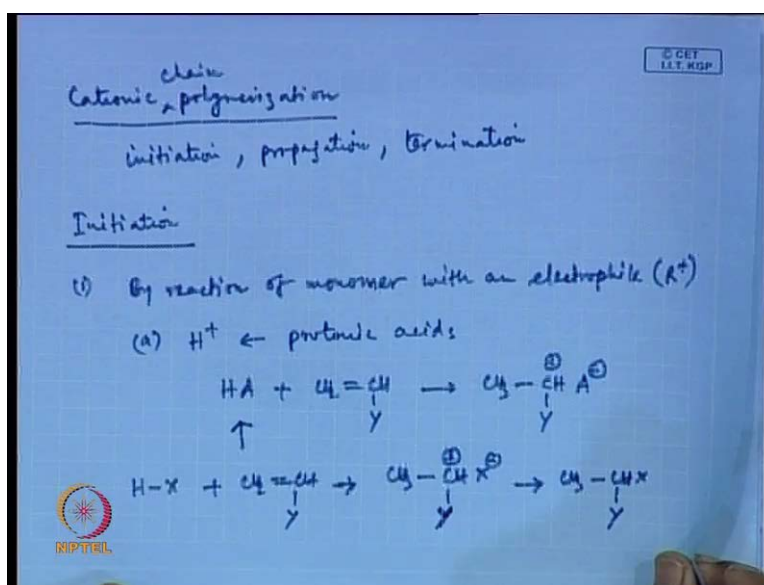 © CET
I.I.T. KGP
chain
Cationic ^ polymerization
initiation, propagation, termination
Initiation
(1) By reaction of monomer with an electrophile (R⁺)
(a) H⁺ ← protonic acids
HA + CH₂ = CH → CH₃ – CH⊕ A⊖
Y Y
↑
H–X + CH₂ = CH → CH₃ – CH⊕ X⊖ → CH₃ – CHX
Y Y Y
NPTEL